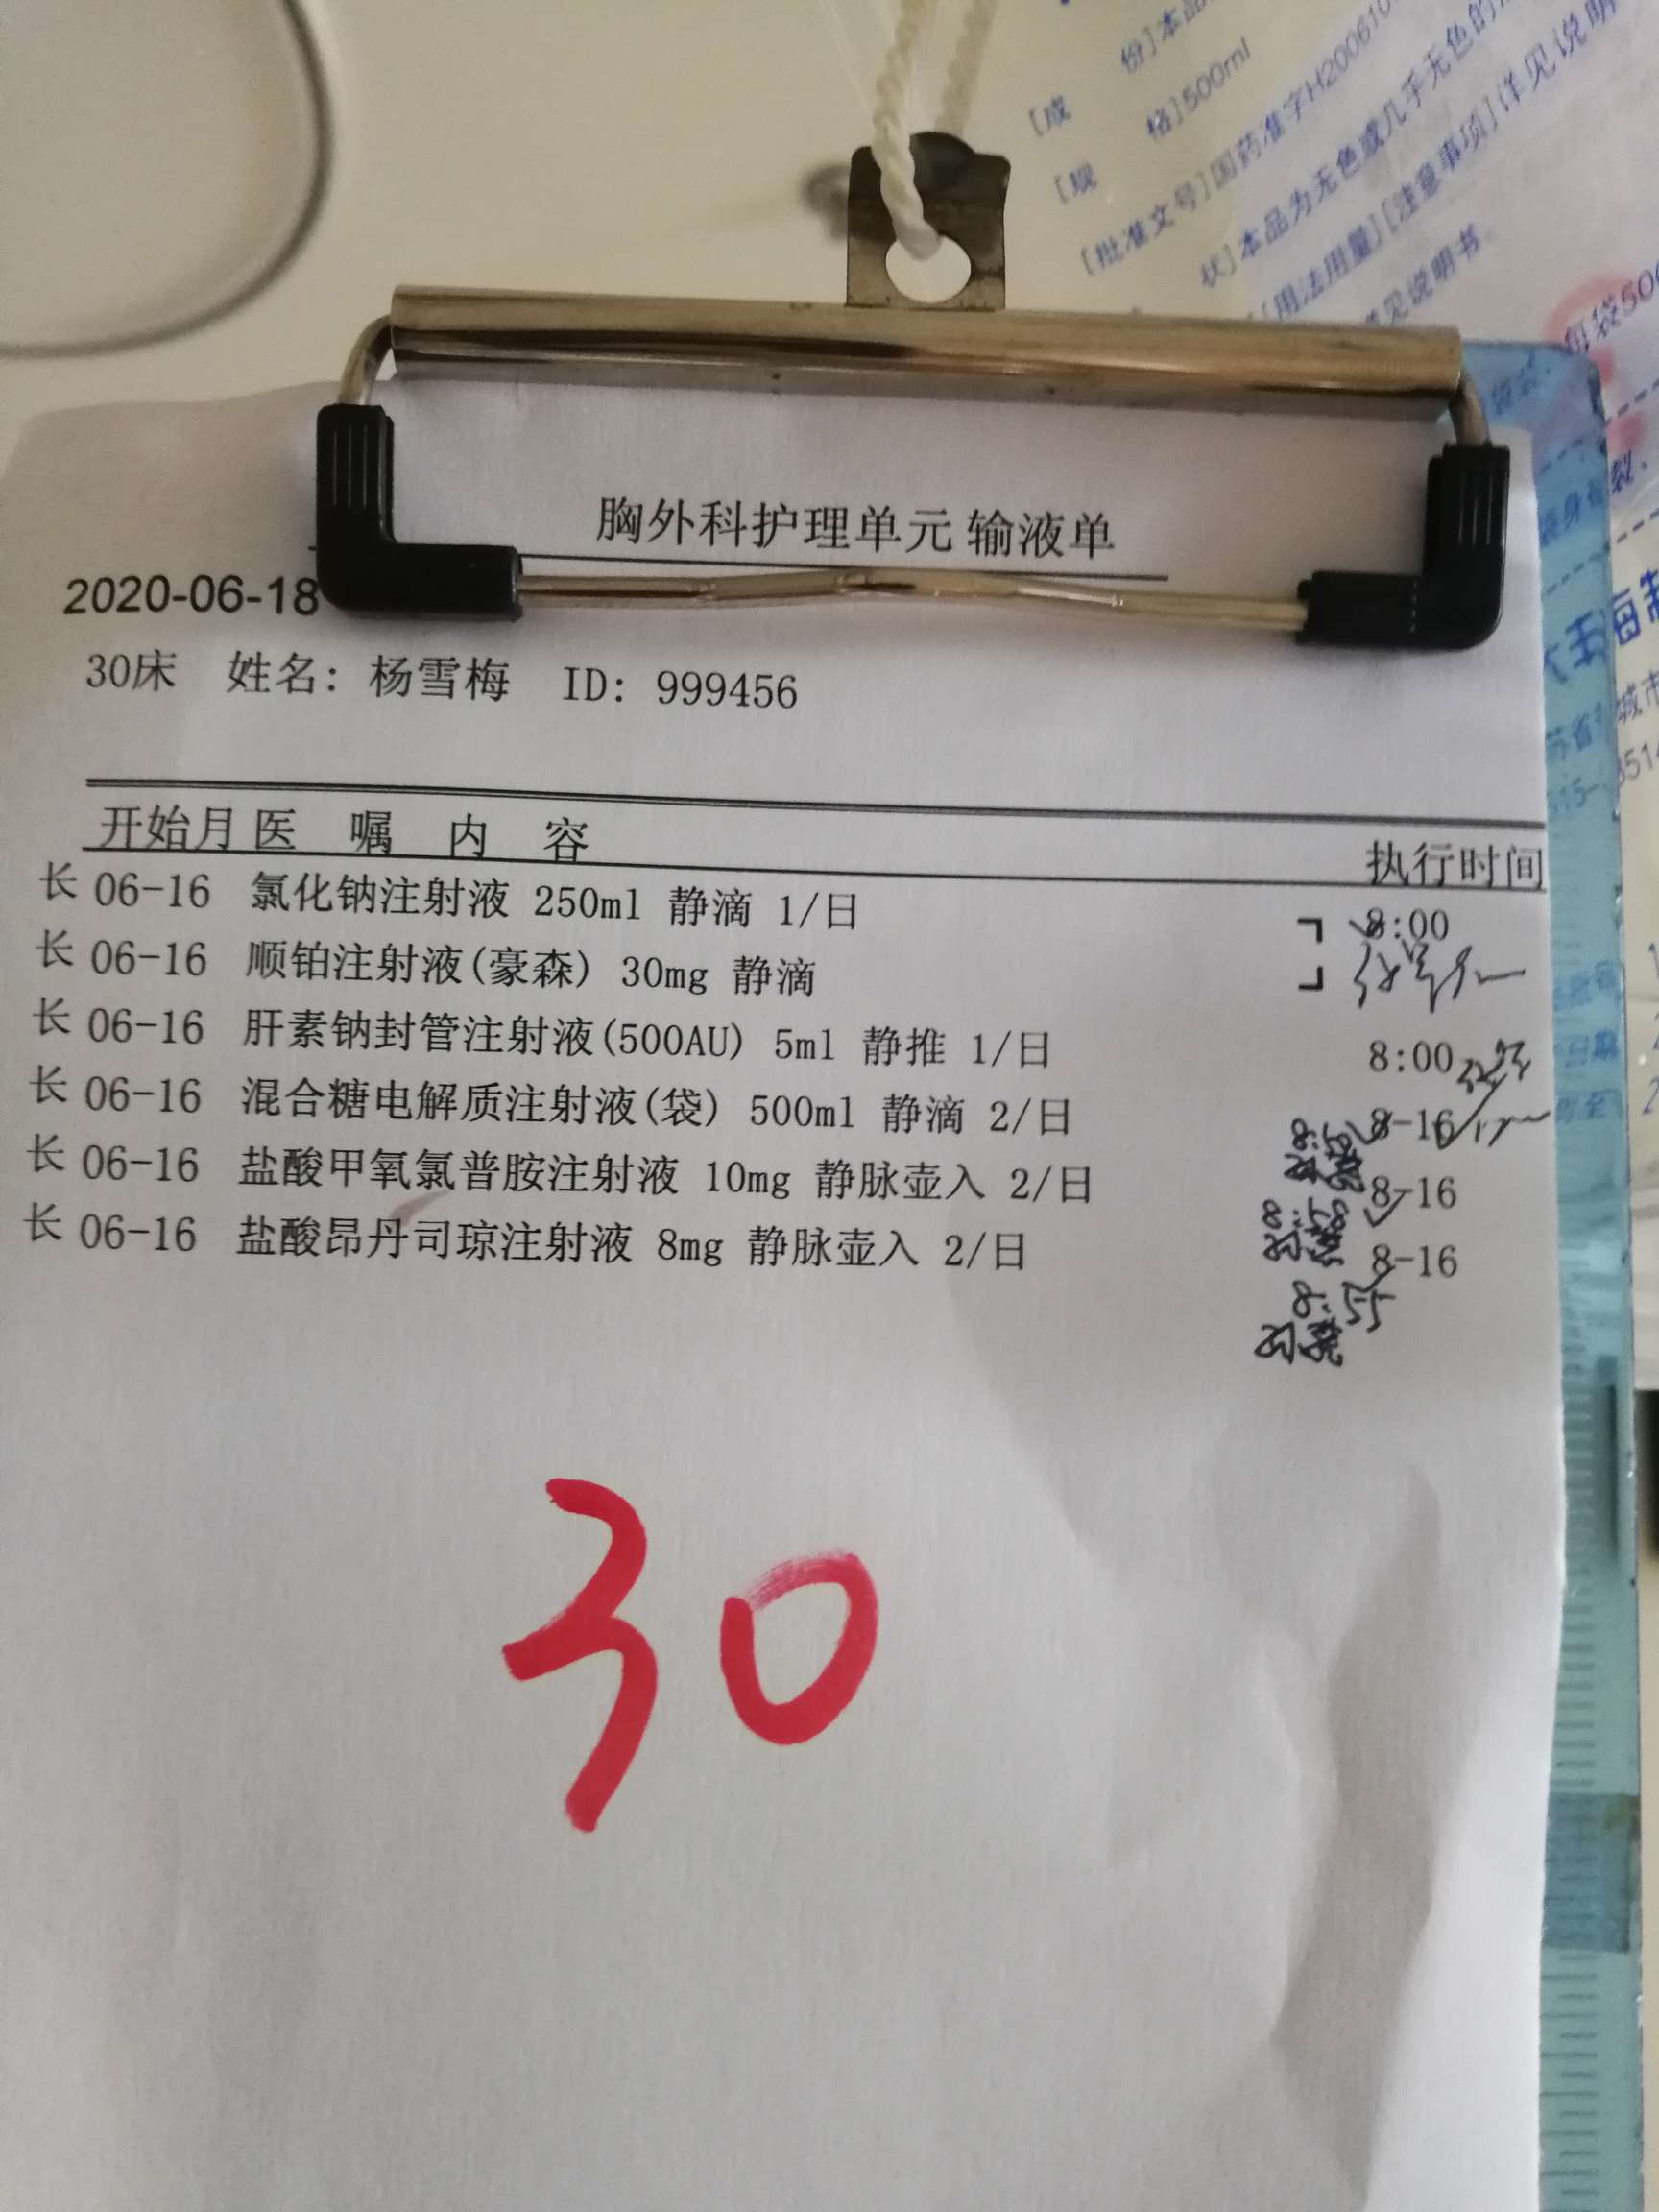 份]本品
[成
格]500ml
[规
[批准文号]国药准字H200610
状]本品为无色或几乎无色的
[用法用量][注意事项]详见说明
详见说明书.
每袋500
胸外科护理单元 输液单
2020-06-18
30床 姓名: 杨雪梅 ID: 999456
开始月 医 嘱 内 容 执行时间
长 06-16 氯化钠注射液 250ml 静滴 1/日 8:00
长 06-16 顺铂注射液(豪森) 30mg 静滴
长 06-16 肝素钠封管注射液(500AU) 5ml 静推 1/日 8:00
长 06-16 混合糖电解质注射液(袋) 500ml 静滴 2/日 8-16
长 06-16 盐酸甲氧氯普胺注射液 10mg 静脉壶入 2/日 8-16
长 06-16 盐酸昂丹司琼注射液 8mg 静脉壶入 2/日 8-16
8:55
30